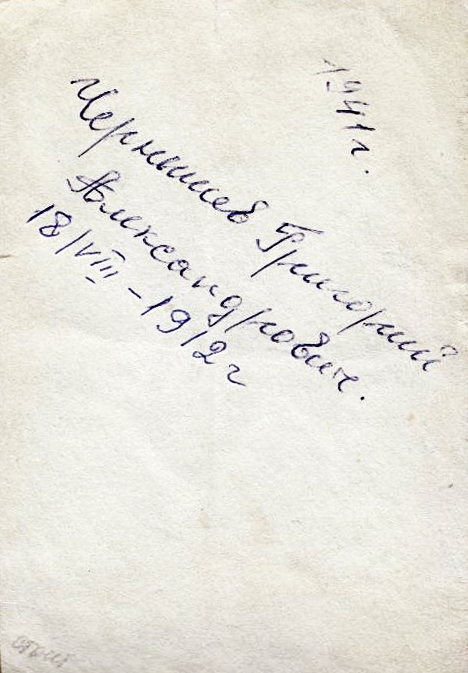 1941г.
Чернышев Григорий
Александрович.
18/VIII-1912г